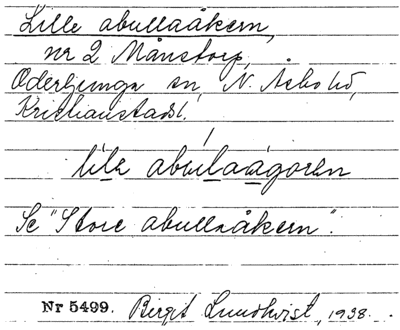 Lille abullaåkern,
nr 2 Månstorp,
Oderljunga sn, N. Åsbo hd,
Kristianstadsl.
lila abulaågoren
Se "Store abullaåkern".
Nr 5499. Birgit Lundkvist, 1938.